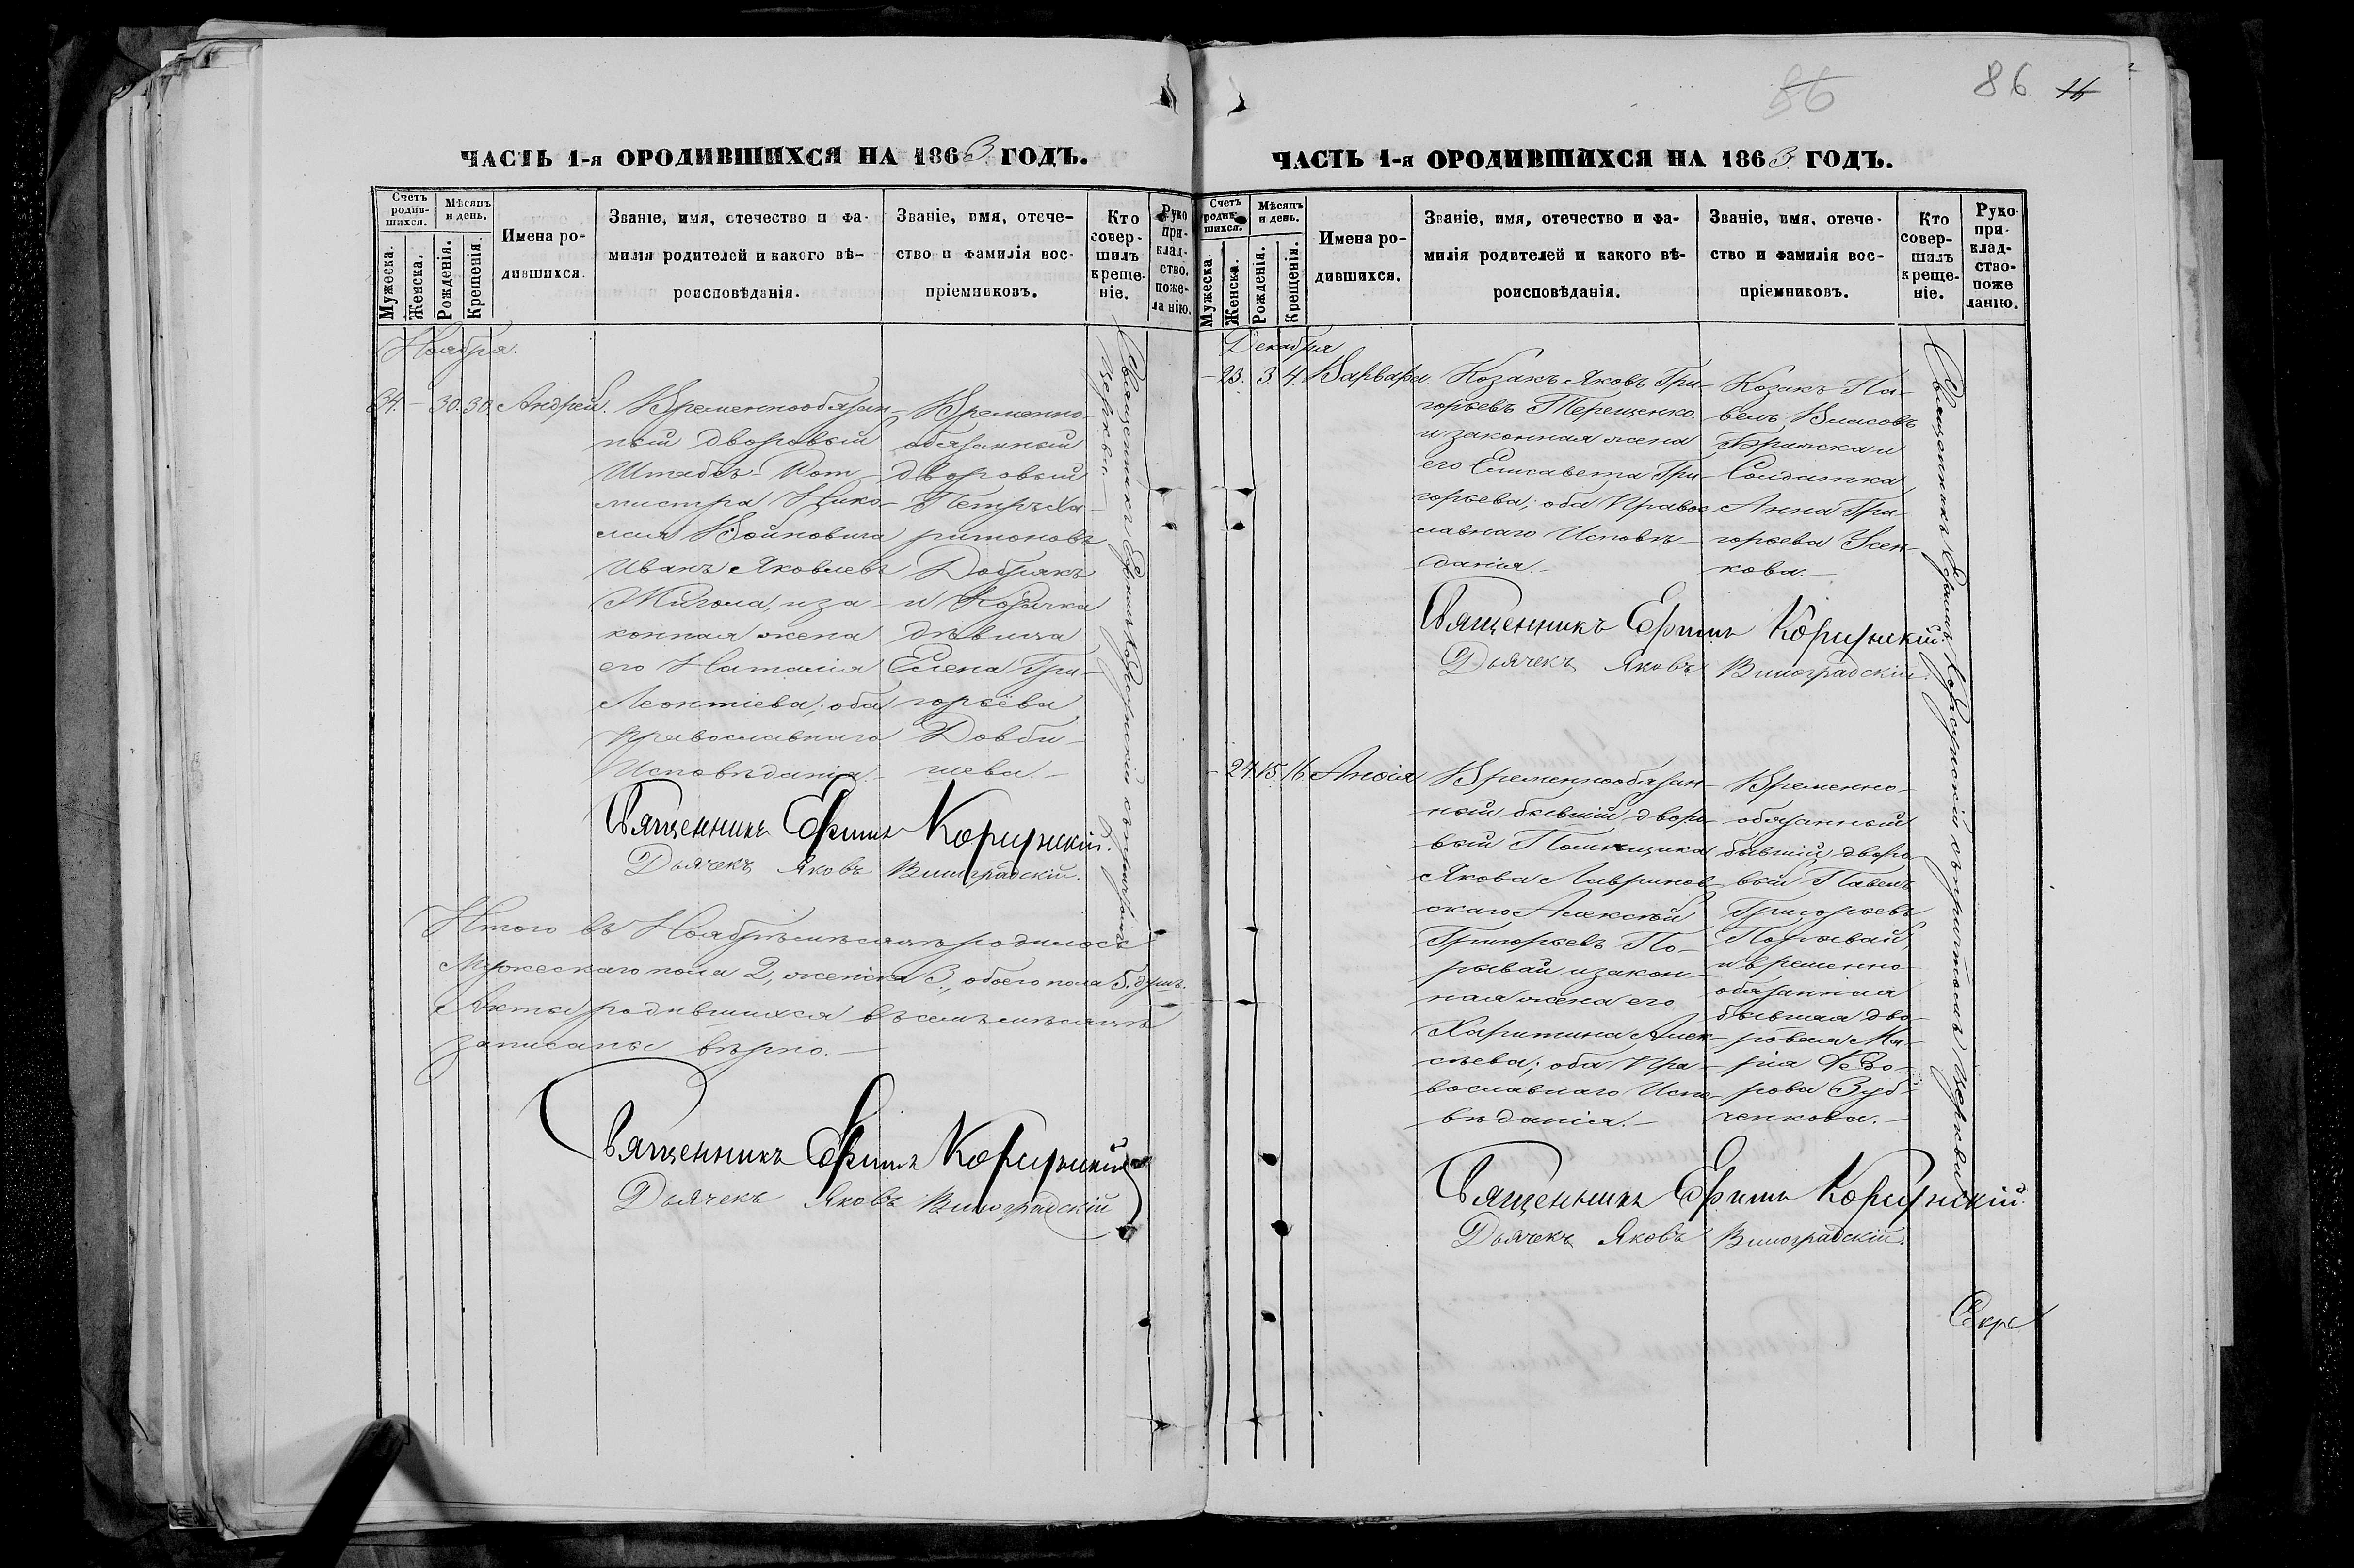 86
86 16
ЧАСТЬ 1-я ОРОДИВШИХСЯ НА 1863 ГОДЪ.
Счетъ родив-шихся.
Мѣсяцъ и день.
Мужеска.
Женска.
Рожденія.
Крещенія.
Имена ро-
дившихся.
Званіе, имя, отечество и фа-
милія родителей и какого вѣ-
роисповѣданія.
Званіе, имя, отече-
ство и фамилія вос-
пріемниковъ.
Кто
совер-
шилъ
креще-
ніе.
Руко
при-
клад-
ство,
поже-
ланію.
Ноября.
34. — 30. 30. Андрей.
Временнообязан-
ный дворовый
Штабсъ-Рот-
мистра Нико-
лая Войновича
Иванъ Яковлевъ
Жигола, и за-
конная жена
его Наталія
Леонтіева; оба
православнаго
Исповѣданія.—
Временно-
обязанный
дворовый
Петръ Ха-
ритоновъ
Добрякъ
и Козачка
дѣвица
Елена Гри-
горьева
Довби-
шева.—
Священникъ Ефимъ Корсунскій съ причтомъ
церкви.—
Священникъ Ефимъ Корсунскій.
Дьячекъ Яковъ Виноградскій.
Итого въ Ноябрѣ мѣсяцѣ родилось
Мужескаго пола 2, женска 3, обоего пола 5. душъ.
Акты родившихся въ семъ мѣсяцѣ
записаны вѣрно.—
Священникъ Ефимъ Корсунскій
Дьячекъ Яковъ Виноградскій
ЧАСТЬ 1-я ОРОДИВШИХСЯ НА 1863 ГОДЪ.
Счетъ родив-шихся.
Мѣсяцъ и день.
Мужеска.
Женска.
Рожденія.
Крещенія.
Имена ро-
дившихся.
Званіе, имя, отечество и фа-
милія родителей и какого вѣ-
роисповѣданія.
Званіе, имя, отече-
ство и фамилія вос-
пріемниковъ.
Кто
совер-
шилъ
креще-
ніе.
Руко
при-
клад-
ство-
поже
ланію.
Декабря
— 23. 3. 4. Варвара.
Козакъ Яковъ Гри-
горьевъ Терещенко.
и законная жена
его Елисавета Гри-
горьева; оба Право-
славнаго Исповѣ-
данія.—
Козакъ Па-
велъ Власовъ
и
Солдатка
Анна Гри-
горьева Усен-
кова.—
Священникъ Ефимъ Корсунскій.
Дьячекъ Яковъ Виноградскій.
— 24. 15. 16. Анисія
Временнообязан-
ный бывшій дворо-
вый Помѣщика
Якова Лавринов-
скаго Алексѣй
Григорьевъ По-
рывай и закон-
ная жена его
Харитина Алек-
сѣева; оба Пра-
вославнаго Испо-
вѣданія.—
Временно-
обязанный
бывшій дворо-
вый Павелъ
Григорьевъ
Порывай
и временно-
обязанная
бывшая дво-
ровая Ма-
рія Ѳедо-
рова Зуб-
ченкова.—
Священникъ Ефимъ Корсунскій съ причтомъ церкви.
Священникъ Ефимъ Корсунскій.
Дьячекъ Яковъ Виноградскій.